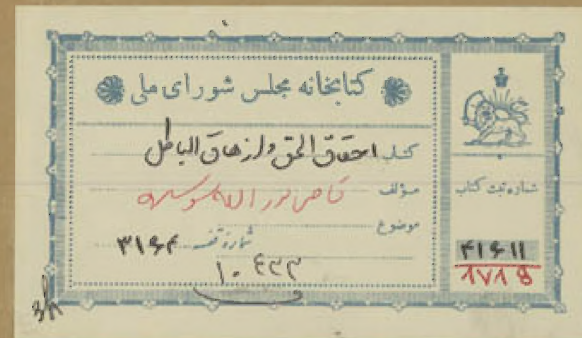 کتابخانه مجلس شورای ملی
کتاب احقاق الحق و ازهاق الباطل
مؤلف قاضی نور الله شوشتری
موضوع
شماره قفسه ۳۱۶۴
۱۰۴۳۳
شماره ثبت کتاب
۴۱۶۱۱